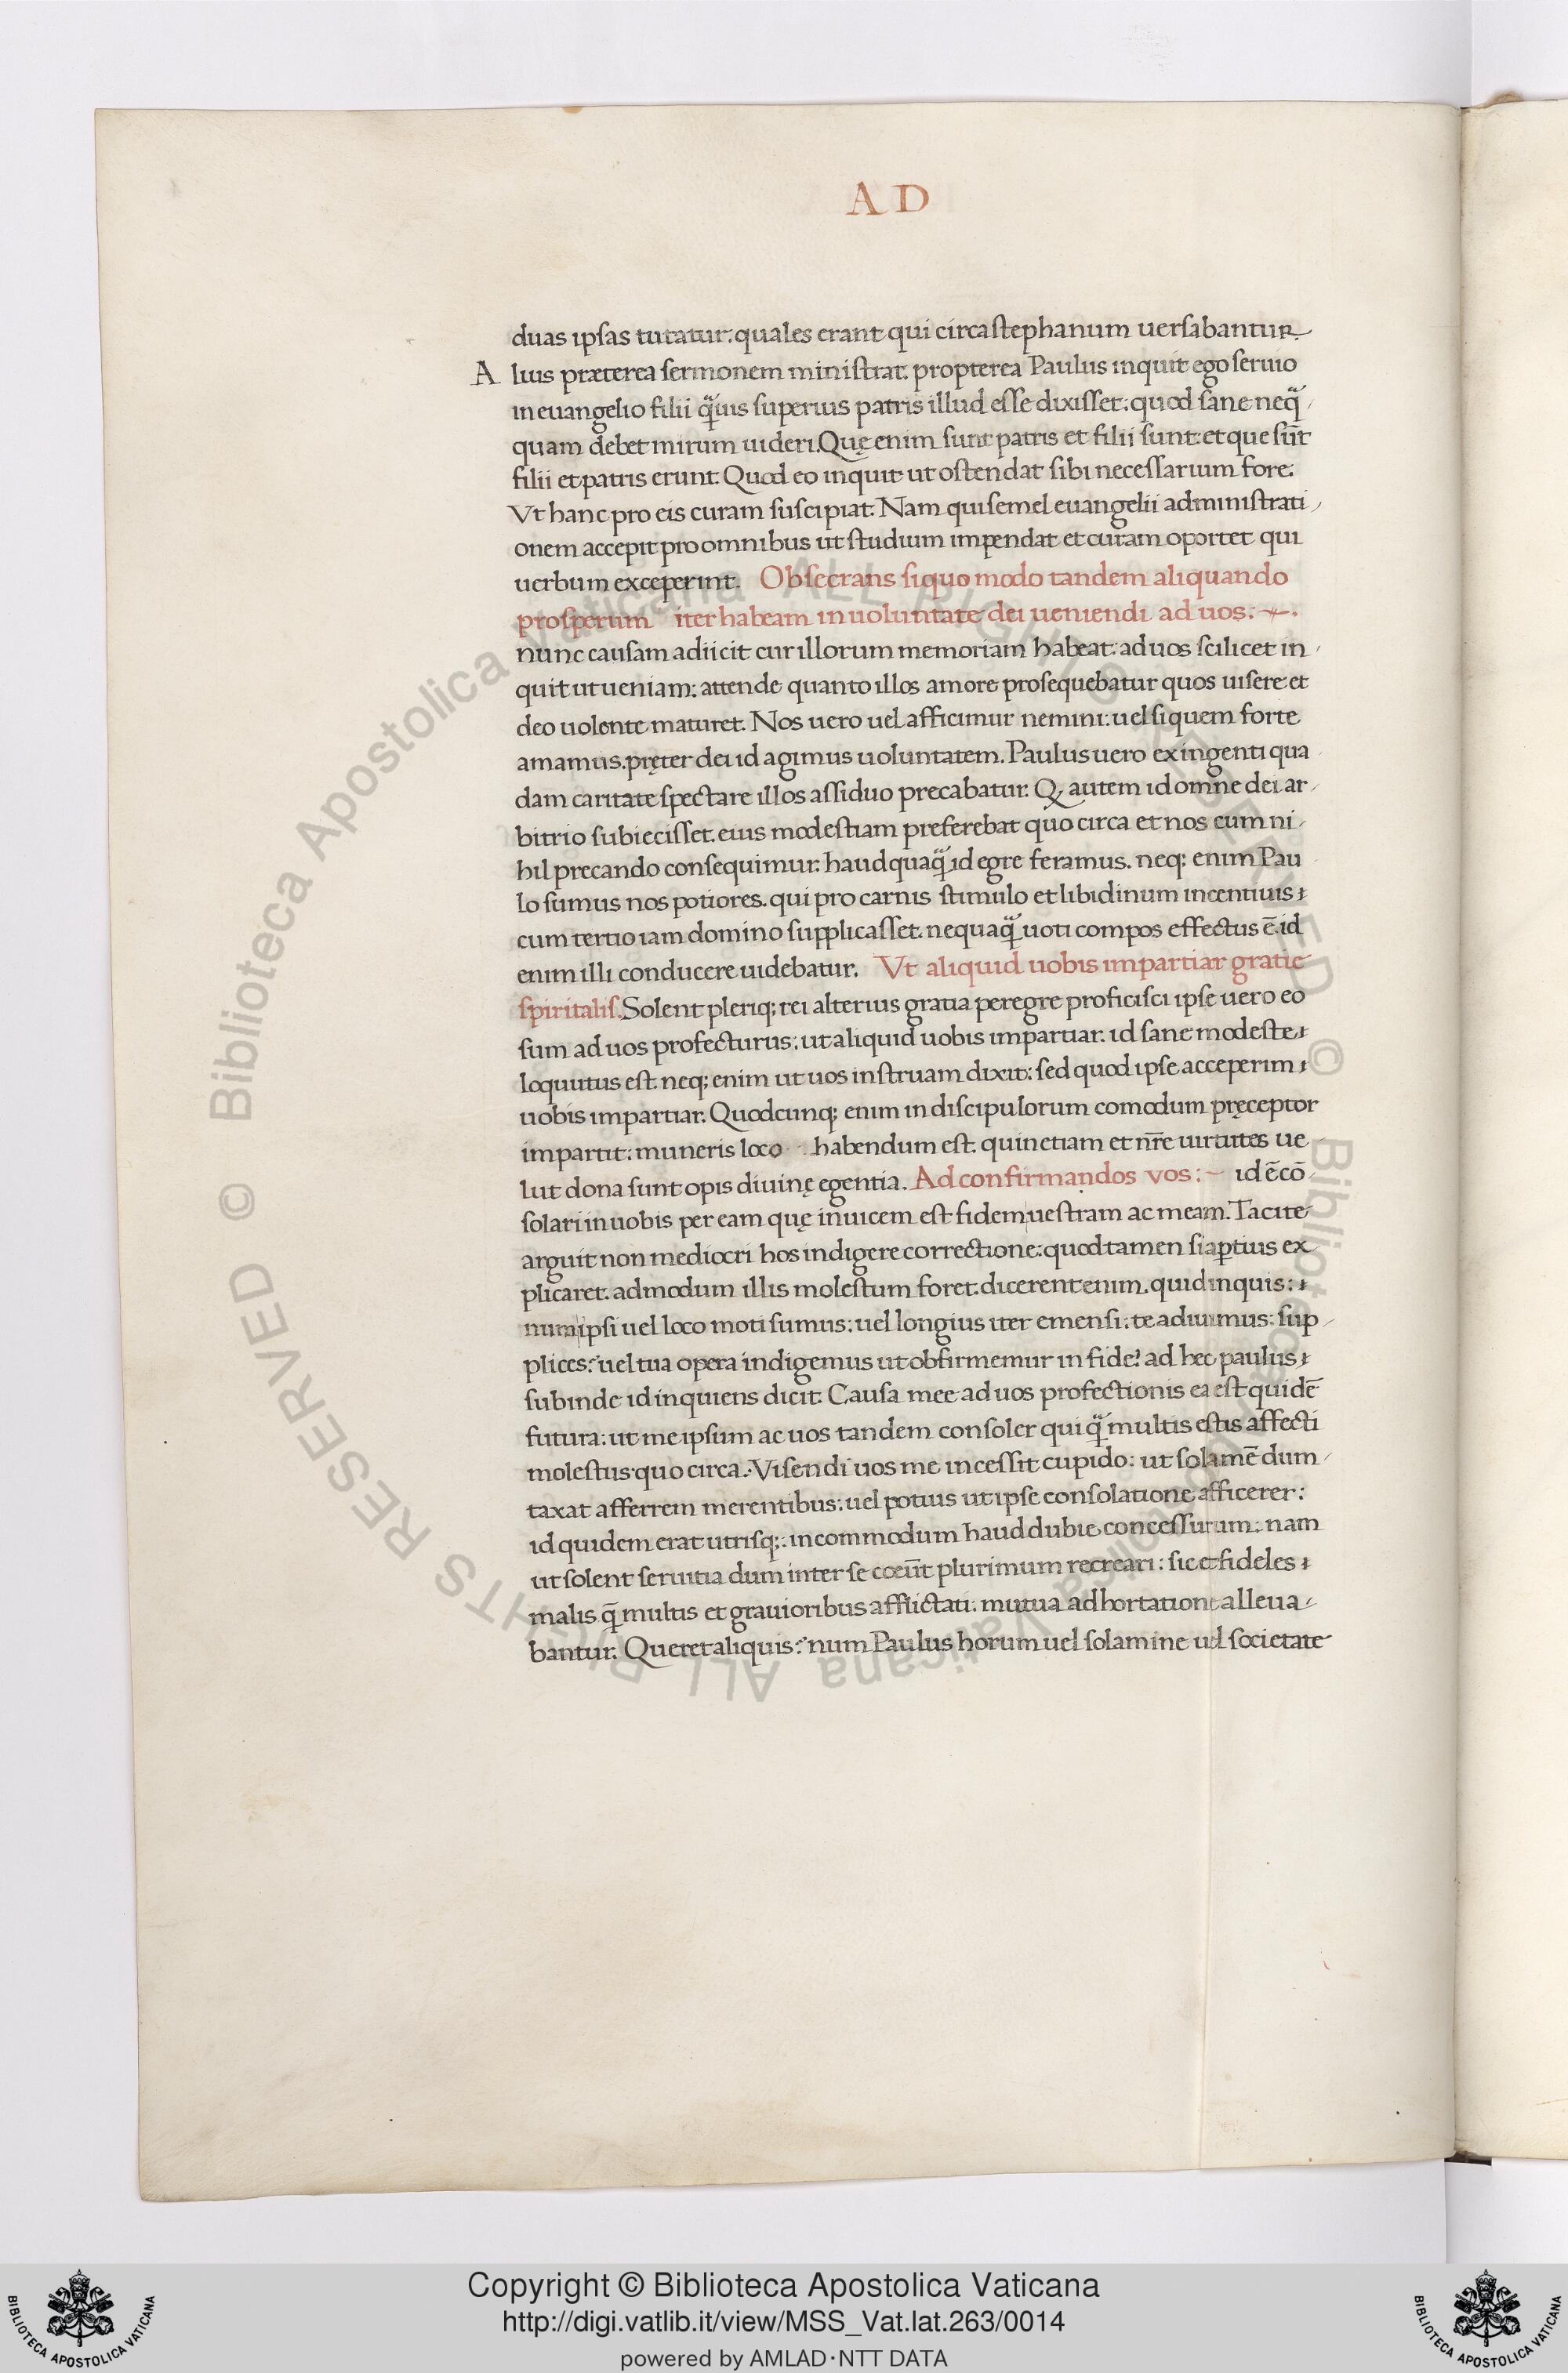 AD
duas ipsas tutatur: quales erant qui circa stephanum uersabantur
Alius præterea sermonem ministrat. propterea Paulus inquit ego seruio
in euangelio filii q̃uis superius patris illud esse dixisset: quod sane neq̃
quam debet mirum uideri. Quę enim sunt patris et filii sunt: et que sūt
filii et patris erunt. Quod eo inquit ut ostendat sibi necessarium fore.
Vt hanc pro eis curam suscipiat. Nam qui semel euangelii administrati
onem accepit pro omnibus ut studium impendat et curam oportet qui
uerbum exceperint. Obsecrans siquo modo tandem aliquando
prosperum iter habeam in uoluntate dei ueniendi ad uos:
nunc causam adiicit cur illorum memoriam habeat: ad uos scilicet in
quit ut ueniam: attende quanto illos amore prosequebatur quos uisere et
deo uolente maturet. Nos uero uel afficimur nemini: uel siquem forte
amamus. pręter dei id agimus uoluntatem. Paulus uero ex ingenti qua
dam caritate spectare illos assiduo precabatur. Q autem id omne dei ar
bitrio subiecisset. eius modestiam preferebat quo circa et nos cum ni
hil precando consequimur. haud quaq̃ id egre feramus. neq; enim Pau
lo sumus nos potiores. qui pro carnis stimulo et libidinum incentiuis
cum tertio iam domino supplicasset. nequaq̃ uoti compos effectus ē. id
enim illi conducere uidebatur. Vt aliquid uobis impartiar gratie
spiritalis. Solent pleriq; rei alterius gratia peregre proficisci ipse uero eo
sum ad uos profecturus: ut aliquid uobis impartiar. id sane modeste
loquutus est. neq; enim ut uos instruam dixit: sed quod ipse acceperim
uobis impartiar. Quodcunq; enim in discipulorum comodum pręceptor
impartit: muneris loco habendum est. quin etiam et nr̄e uirtutes ue
lut dona sunt opis diuinę egentia. Ad confirmandos vos: id ē cō
solari in uobis per eam quę inuicem est fidem uestram ac meam. Tacite
arguit non mediocri hos indigere correctione: quod tamen si aptius ex
plicaret. admodum illis molestum foret. dicerent enim. quid inquis:
num ipsi uel loco moti sumus: uel longius iter emensi: te adiuimus: sup
plices? uel tua opera indigemus ut obfirmemur in fide? ad hec paulus
subinde id inquiens dicit. Causa mee ad uos profectionis ea est quidē
futura: ut me ipsum ac uos tandem consoler qui q̃ multis estis affecti
molestus quo circa. Visendi uos me incessit cupido: ut solamē dum
taxat afferrem merentibus: uel potius ut ipse consolatione afficerer:
id quidem erat utrisq;: in commodum haud dubie concessurum: nam
ut solent seruitia dum inter se coeūt plurimum recreari: sic et fideles
malis q̃ multis et grauioribus afflictati. mutua adhortatione alleua
bantur. Queret aliquis? num Paulus horum uel solamine uel societate
© Biblioteca Apostolica Vaticana ALL RIGHTS RESERVED
© Biblioteca Apostolica Vaticana ALL RIGHTS RESERVED
BIBLIOTECA APOSTOLICA VATICANA
Copyright © Biblioteca Apostolica Vaticana
http://digi.vatlib.it/view/MSS_Vat.lat.263/0014
powered by AMLAD·NTT DATA
BIBLIOTECA APOSTOLICA VATICANA